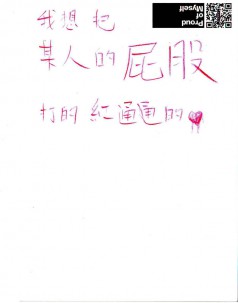 Proud
of
Myself
我想把
某人的屁股
打的紅通通的